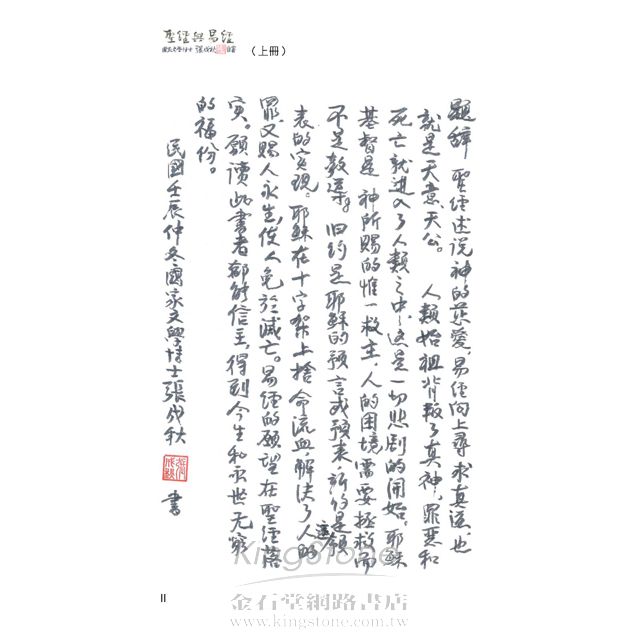 聖經與易經
國家文學博士 張成秋 著
（上冊）
題辞 聖經述说神的慈愛，易經向上尋求真道，也
就是天意天公。 人類始祖背叛了真神，罪惡和
死亡就進入了人類之中，這是一切悲剧的開始。耶稣
基督是 神所赐的惟一救主，人的困境需要拯救而
不是教導。旧约是耶稣的预言或预表，新约是预言
表的實現。耶稣在十字架上捨命流血，解决了人的
罪，又赐人永生，使人免於滅亡。易經的願望在聖經落
實。願讀此書者都能信主，得到今生和永世无窮
的福份。
民國壬辰仲冬國家文學博士張成秋
書
II
KingStone
金石堂網路書店
www.kingstone.com.tw